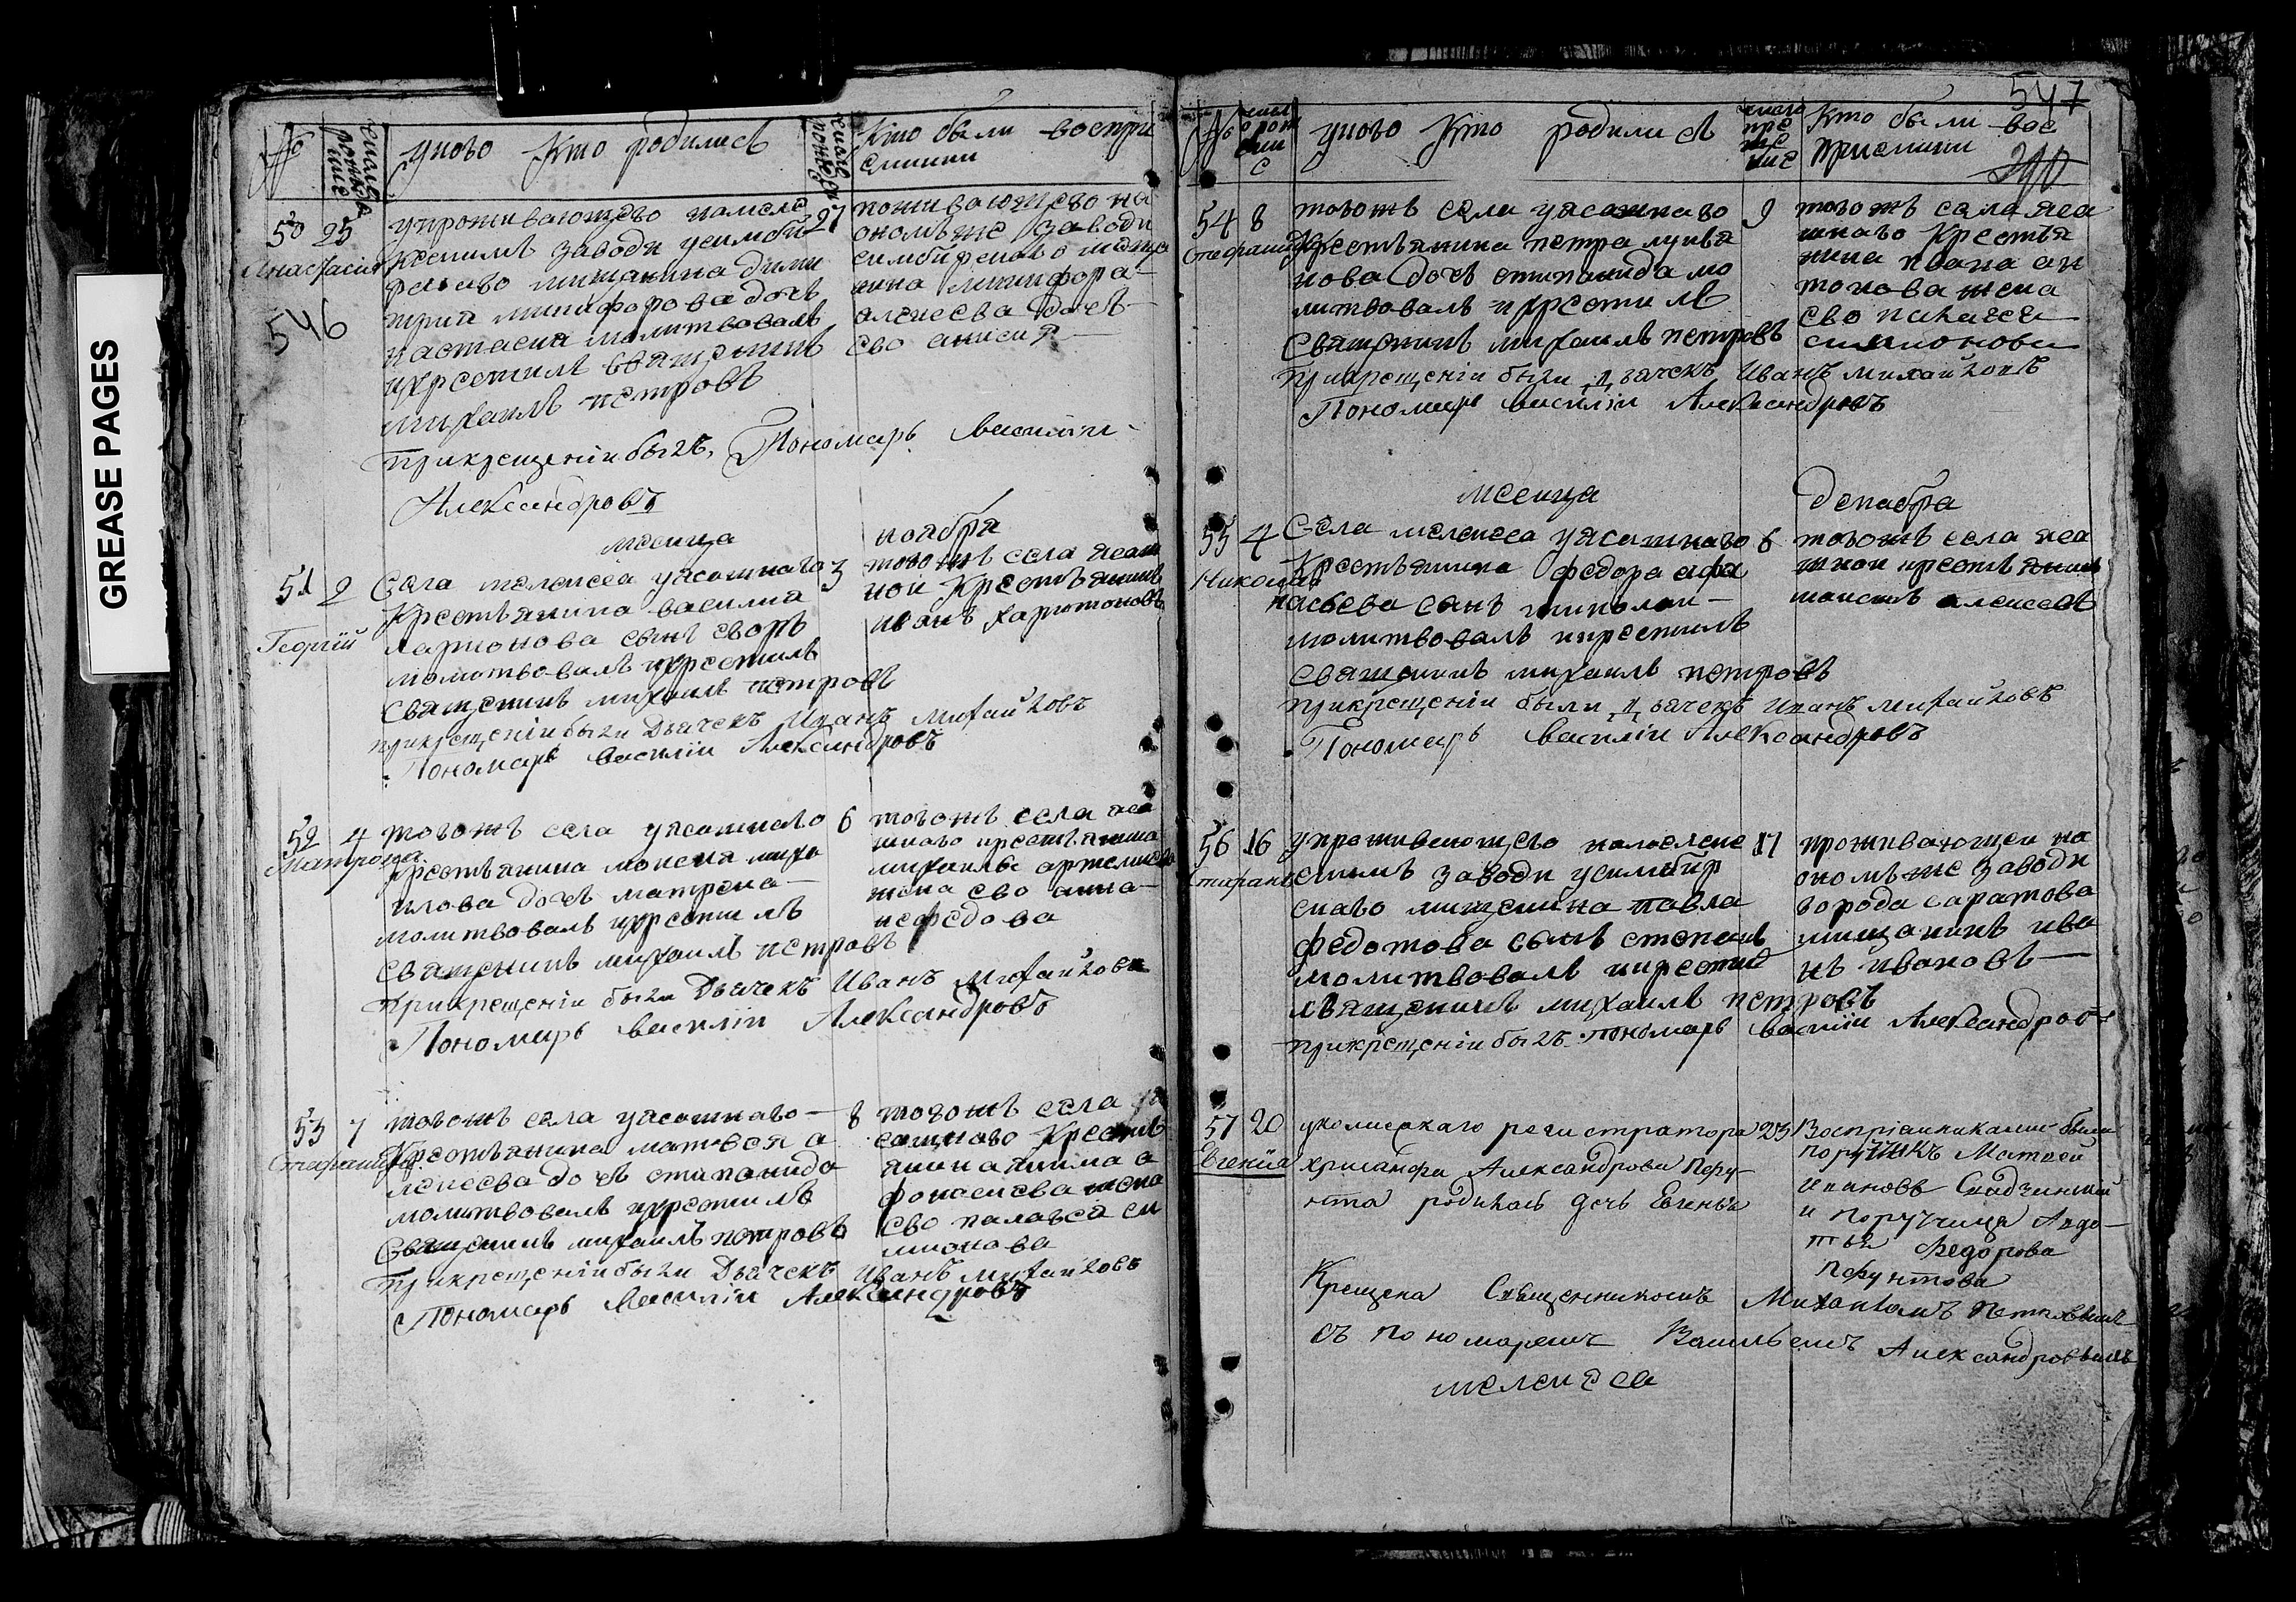 GREASE PAGES
№
число рождения
у кого кто родился
число крещения
Кто были воспри
емники
50 25
Анастасія
546
упроживающего намеле
кескимъ заводи усимбир
скаго мищанина дими
трия никифорова дочь
настасия молитвовалъ
икрестилъ священникъ
михаилъ петровъ
27
поживающего на
ономъже заводи
симбирскаго мища
нина никифора
алексеева дочь
ево анисия
Прикрещеніи былъ, Пономарь Василіи
Александровъ
месица ноября
51 2
Георгій
Села мелекеса уясашнаго
Крестьянина василия
ларионова сынъ егоръ
молитвовалъ икрестилъ
священникъ михаилъ петровъ
3
тогожъ села ясаш
ной Крестьянинъ
иванъ харитоновъ
прикрещеніи были Дьячекъ Иванъ Михайловъ
Пономарь Василіи Александровъ
52 4
Матрона
тогожъ села уясашнаго
крестьянина моисея миха
илова дочь матрена
молитвовалъ икрестилъ
священникъ михаилъ петровъ
6
тогожъ села яса
шнаго крестьянина
михаилы артемьева
жена ево анна
нефедова
Прикрещеніи были Дьячекъ Иванъ Михайловъ
Пономарь Василіи Александровъ
53 7
Стефанида
тогожъ села уясашнаго
Крестьянина матвея а
лексеева дочь стипанида
молитвовалъ икрестилъ
Священникъ михаилъ петровъ
8
тогожъ села я
сашнаго Кресть
янина якима а
фонасиева жена
ево палагея си
мионова
Прикрещеніи были Дьячекъ Иванъ Михайловъ
Пономарь Василіи Александровъ
547
№
число рождения
у кого Кто родился
число крещение
Кто были вос
приемники
54 8
Стефанида
тогожъ села уясашнаго
Крестьянина петра лукья
нова дочь стипанида мо
литвовалъ икрестилъ
Священникъ михаилъ петровъ
9
тогожъ села яса
шнаго Крестья
нина ивана ан
тонова жена
ево пилагея
симионова
Прикрещеніи были дьячекъ Иванъ Михайловъ
Пономарь Василіи Александровъ
месица декабря
55 4
Николай
Села мелекеса уясашнаго
Крестьянина федора афа
насьева сынъ николаи
молитвовалъ икрестилъ
священникъ михаилъ петровъ
6
тогожъ села яса
шнои крестьянинъ
моисей алексеевъ
Прикрещеніи были дьячекъ Иванъ Михайловъ
Пономарь Василіи Александровъ
56 16
Стефанъ
упроживающего намелеке
скимъ заводи усимбир
скаго мищанина павла
федотова сынъ степанъ
молитвовалъ икрестил
священникъ михаилъ петровъ
17
проживающеи на
ономъже заводи
города саратова
мищанинъ ива
нъ ивановъ
прикрещеніи былъ пономарь Василіи Александровъ
57 20
Евгенія
уколижскаго регистратора
Хрисанфа Александрова Перу
нта родилась дочь Евгенья
23
Воспріемниками были
порутчикъ Матвей
Ивановъ
и порутчица Авдо
тья Федорова
Перунтова
Крещена Священникомъ Михаиломъ Петровымъ
съ пономаремъ Васильемъ Александровымъ
мелекеса